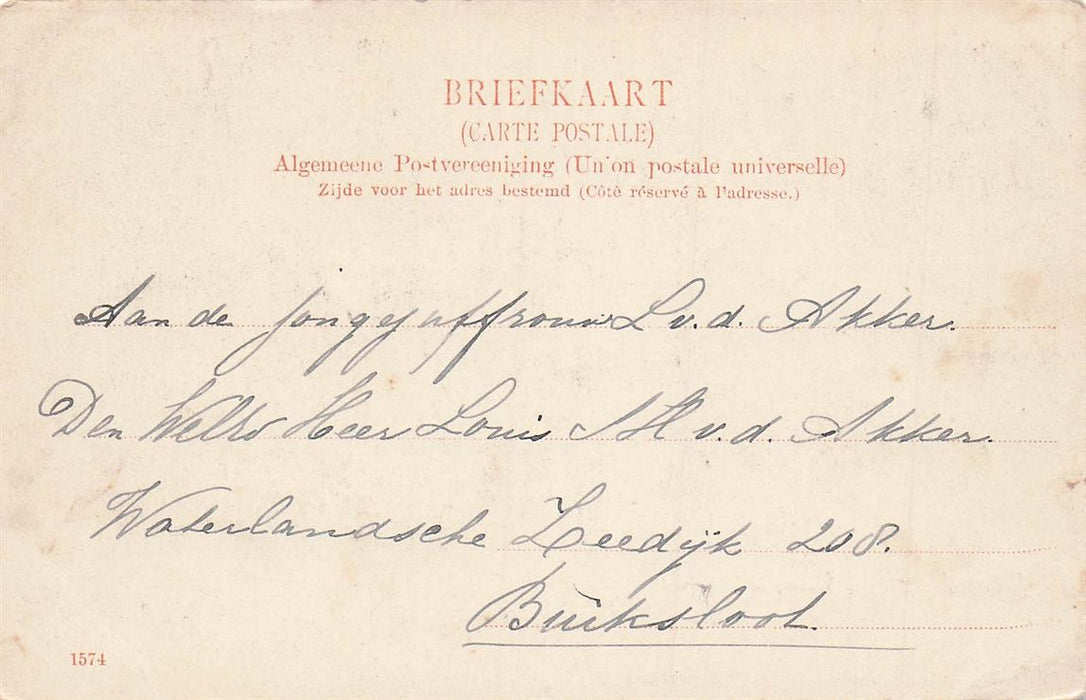 BRIEFKAART
(CARTE POSTALE)
Algemeene Postvereeniging (Union postale universelle)
Zijde voor het adres bestemd (Côté réservé à l'adresse.)
Aan de Jongejuffrouw L v. d. Akker.
Den Heer Louis v. d. Akker.
Waterlandsche Zeedijk 208.
Buiksloot.
1574